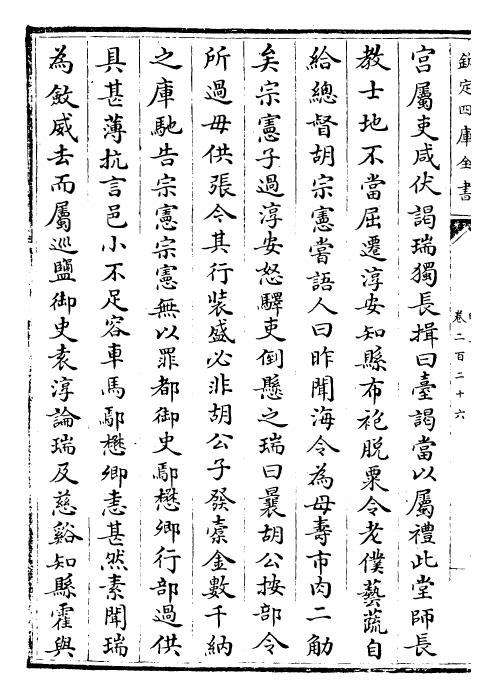 欽定四庫全書
卷二百二十六
宫屬吏咸伏謁瑞獨長揖曰臺謁當以屬禮此堂師長
教士地不當屈遷淳安知縣布袍脱粟令老僕藝蔬自
給總督胡宗憲嘗語人曰昨聞海令為母夀市肉二觔
矣宗憲子過淳安怒驛吏倒懸之瑞曰曩胡公按部令
所過毋供張今其行裝盛必非胡公子發槖金數千納
之庫馳告宗憲宗憲無以罪都御史鄢懋卿行部過供
具甚薄抗言邑小不足容車馬鄢懋卿恚甚然素聞瑞
為斂威去而屬巡鹽御史袁淳論瑞及慈谿知縣霍與